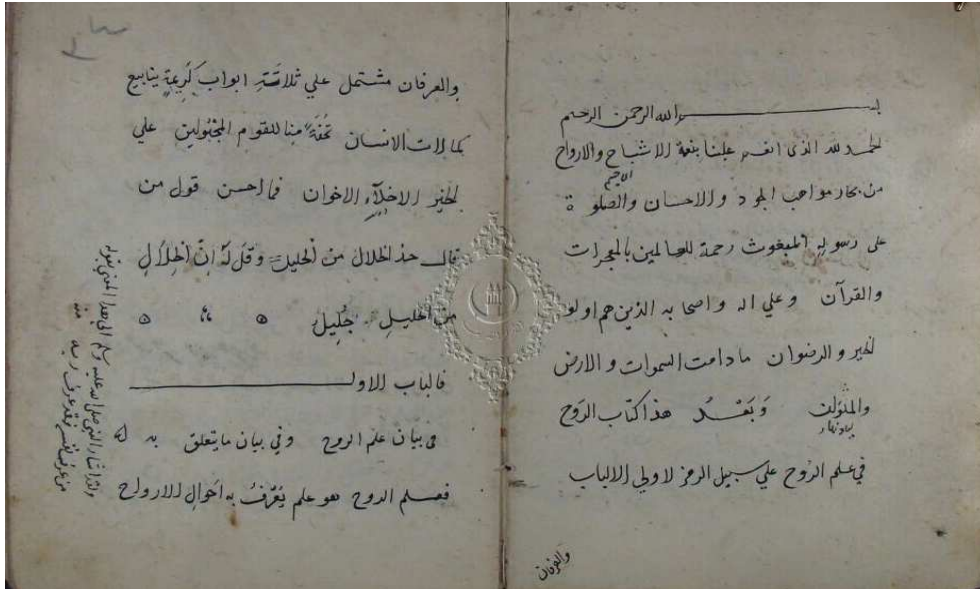 بسم الله الرحمن الرحيم
الحمد لله الذى انعم علينا بنعمة الاشباح والارواح
من بحار مواهب الجود والاحسان والصلوة
على رسوله المبعوث رحمة للعالمين بالمعجزات
والقرآن وعلي اله واصحابه الذين هم اولو
الخير والرضوان ما دامت السموات والارض
وبعد هذا كتاب الروح
في علم الروح علي سبيل الرمز لاولي الالباب
والعرفان
والعرفان مشتمل علي ثلاثة ابواب كريمة ينابيع
كمالات الانسان تحفة منا للقوم المجبولين علي
الخير الاخلاء الاخوان فما احسن قول من
قال خذ الخلال من الخليل وقل له ان الخلال
من الخليل جليل
فالباب الاول
فى بيان علم الروح وفي بيان ما يتعلق به
فعلم الروح هو علم يعرف به احوال الارواح
ولقد اشار النبي صلى الله عليه وسلم الى هذا المعنى بقوله
من عرف نفسه فقد عرف ربه منه